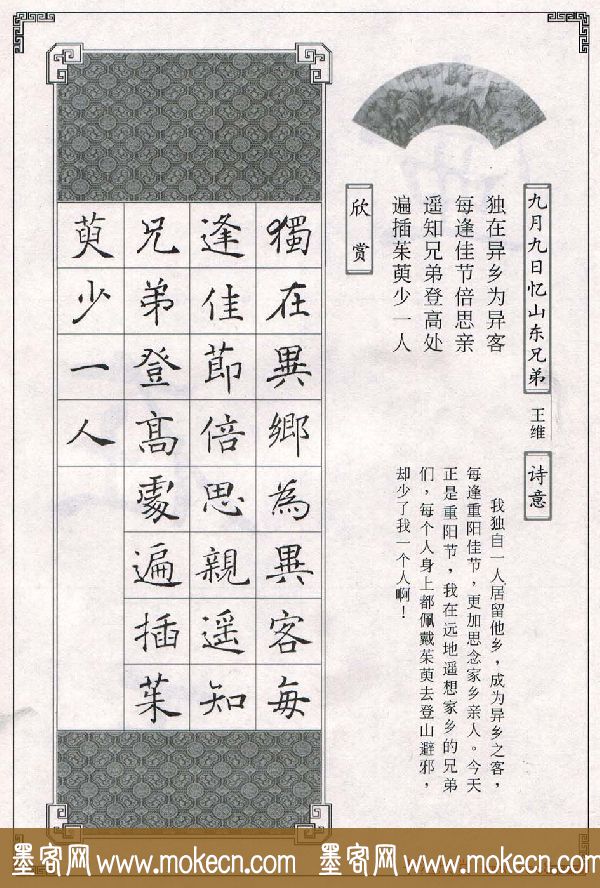 九月九日忆山东兄弟
王维
独在异乡为异客
每逢佳节倍思亲
遥知兄弟登高处
遍插茱萸少一人
诗意
我独自一人居留他乡，成为异乡之客，
每逢重阳佳节，更加思念家乡亲人。今天
正是重阳节，我在远地遥想家乡的兄弟
们，每个人身上都佩戴茱萸去登山避邪，
却少了我一个人啊！
欣赏
獨在異鄉為異客每
逢佳節倍思親遥知
兄弟登高處遍插茱
萸少一人
墨客网 www.mokecn.com 墨客网 www.mokecn.com